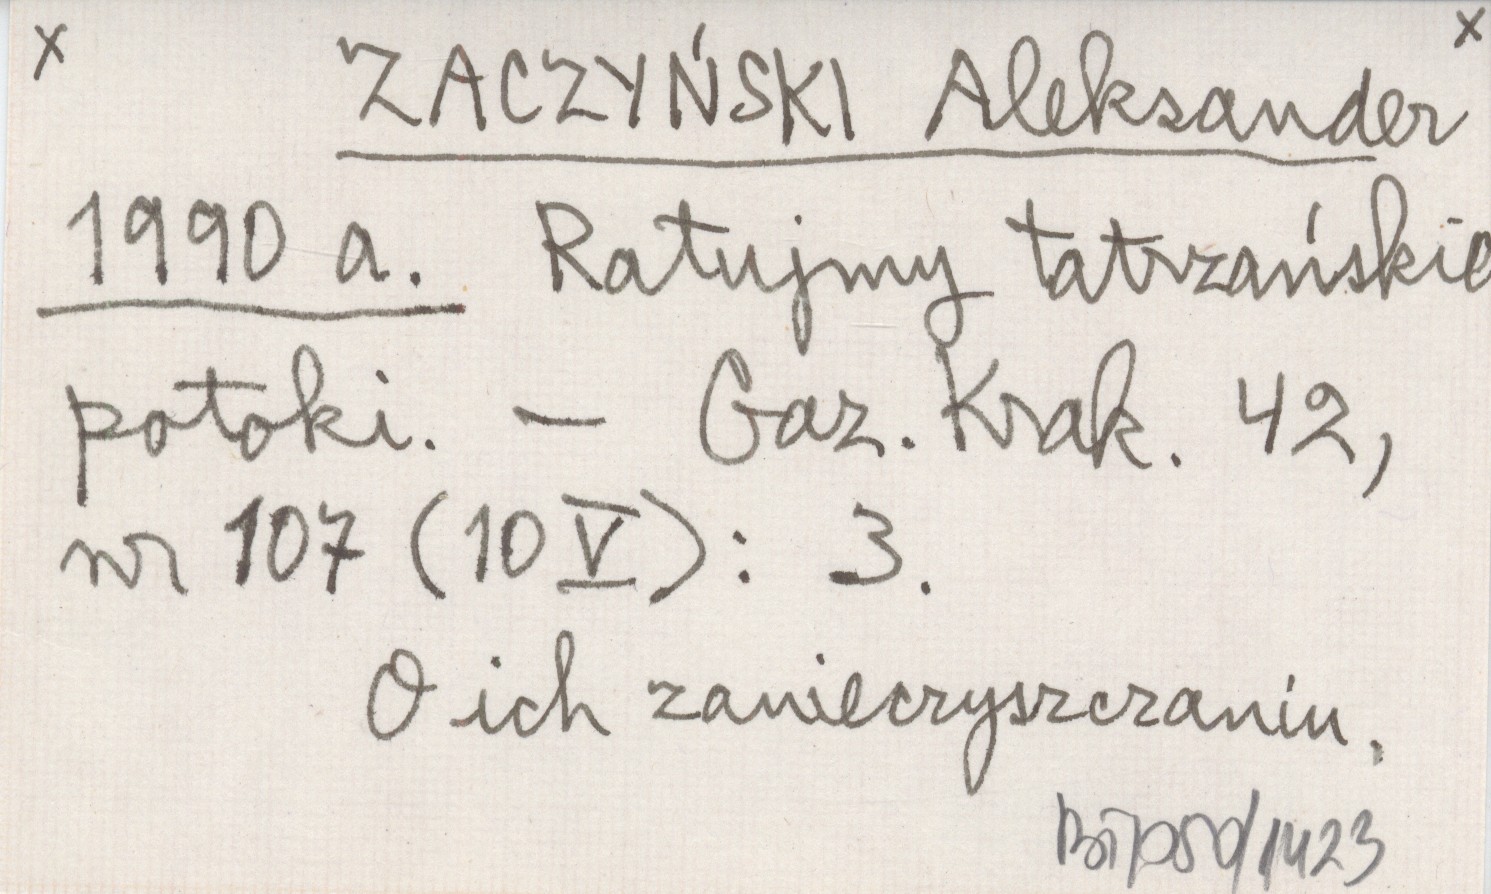 x x
ZACZYŃSKI Aleksander
1990 a. Ratujmy tatrzańskie
potoki. — Gaz. Krak. 42,
nr 107 (10 V): 3.
O ich zanieczyszczaniu.